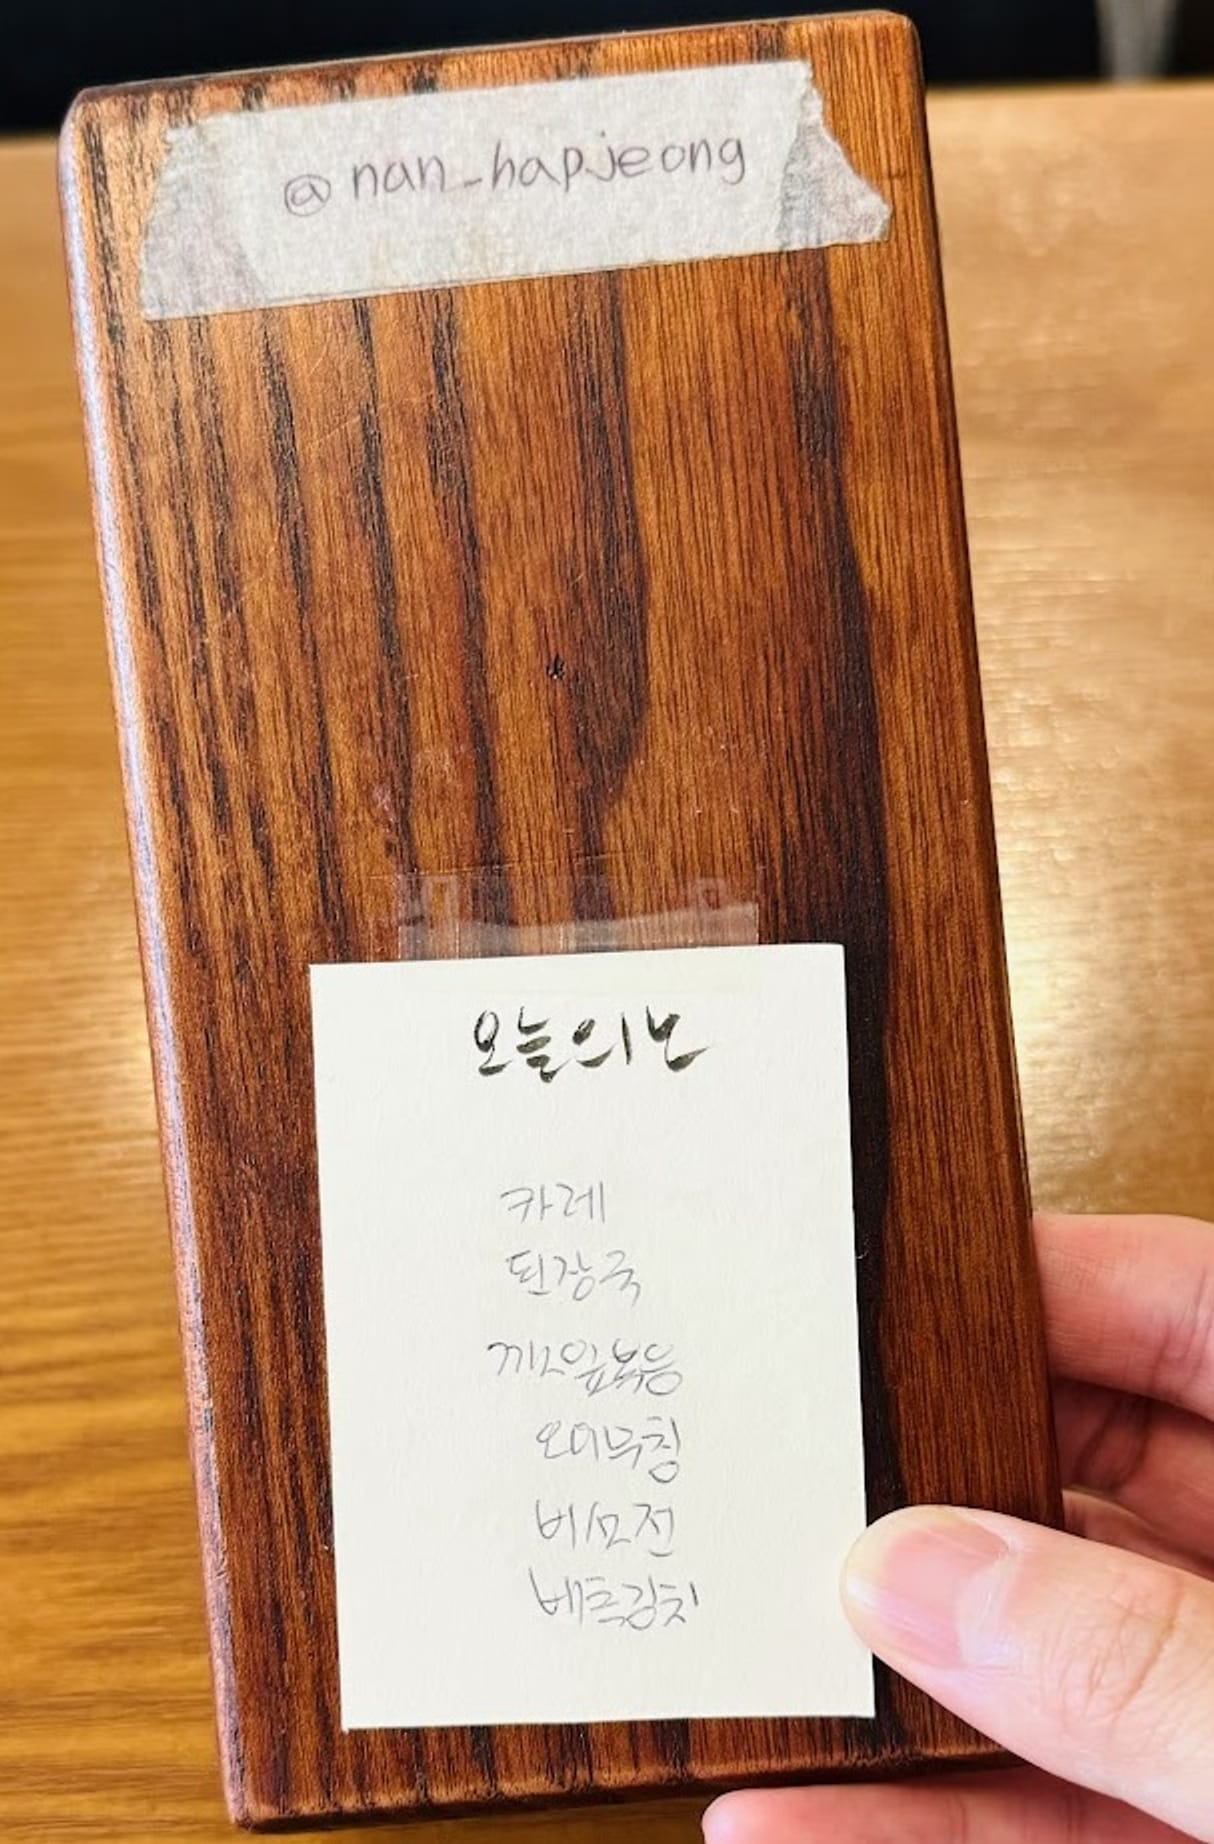 @nan_hapjeong
오늘의난
카레
된장국
깻잎볶음
오이무침
버섯전
배추김치